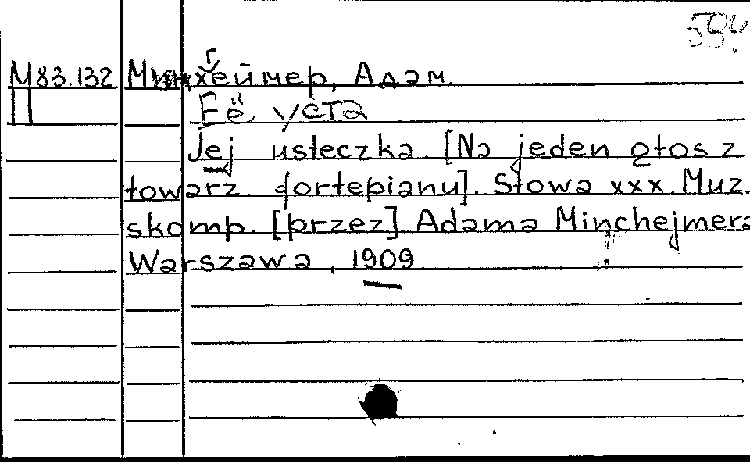 594
М83.132 Минхеймер, Адам.
П Её уста
Jej usteczka. [Na jeden głos z
towarz. fortepianu]. Słowa xxx. Muz.
skomp. [przez] Adama Minchejmera
Warszawa, 1909